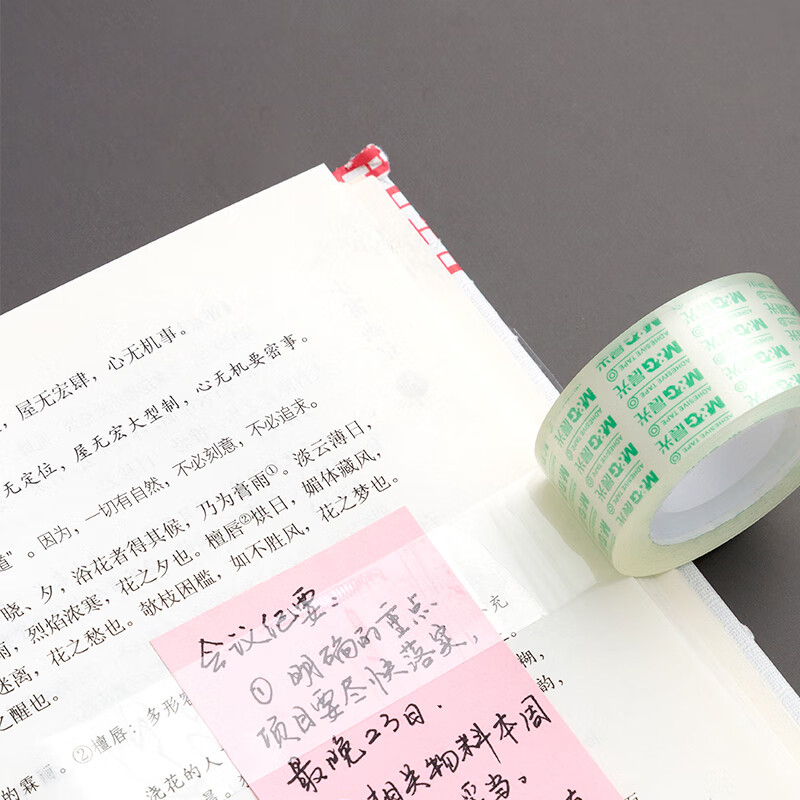 屋无宏肆，心无机事。
屋无宏大型制，心无机要密事。
无定位，
道"。因为，一切有自然，不必刻意，不必追求。
晓、夕，浴花者得其候，乃为膏雨①。淡云薄日，
雨，烈焰浓寒，花之夕也。檀唇②烘日，媚体藏风，
迷离，花之愁也。欹枝困槛，如不胜风，花之梦也
之醒也。
充
②檀唇：多形容
糊，
的霖
浇花的人
韵，
会议纪要：
① 明确的重点
项目要尽快落实，
最晚23日.
相关物料本周
M&G晨光
ADHESIVE TAPE
M&G晨光
ADHESIVE TAPE
M&G晨光
ADHESIVE TAPE
M&G晨光
ADHESIVE TAPE